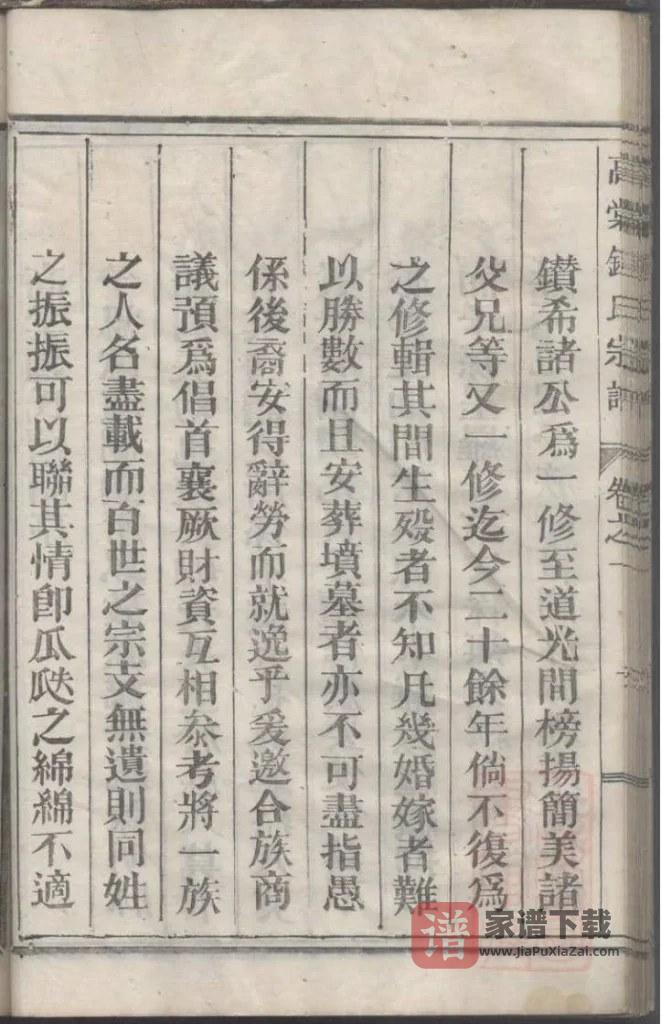 鑽希諸公爲一修至道光間榜揚簡美諸
父兄等又一修迄今二十餘年倘不復爲
之修輯其間生殁者不知凡幾婚嫁者難
以勝數而且安葬墳墓者亦不可盡指愚
係後裔安得辭勞而就逸乎爰邀合族商
議預爲倡首襄厥財資互相叅考將一族
之人名盡載而百世之宗支無遺則同姓
之振振可以聯其情卽瓜瓞之綿綿不適
氏宗譜 卷之一
谱 家谱下载
www.JiaPuXiaZai.com